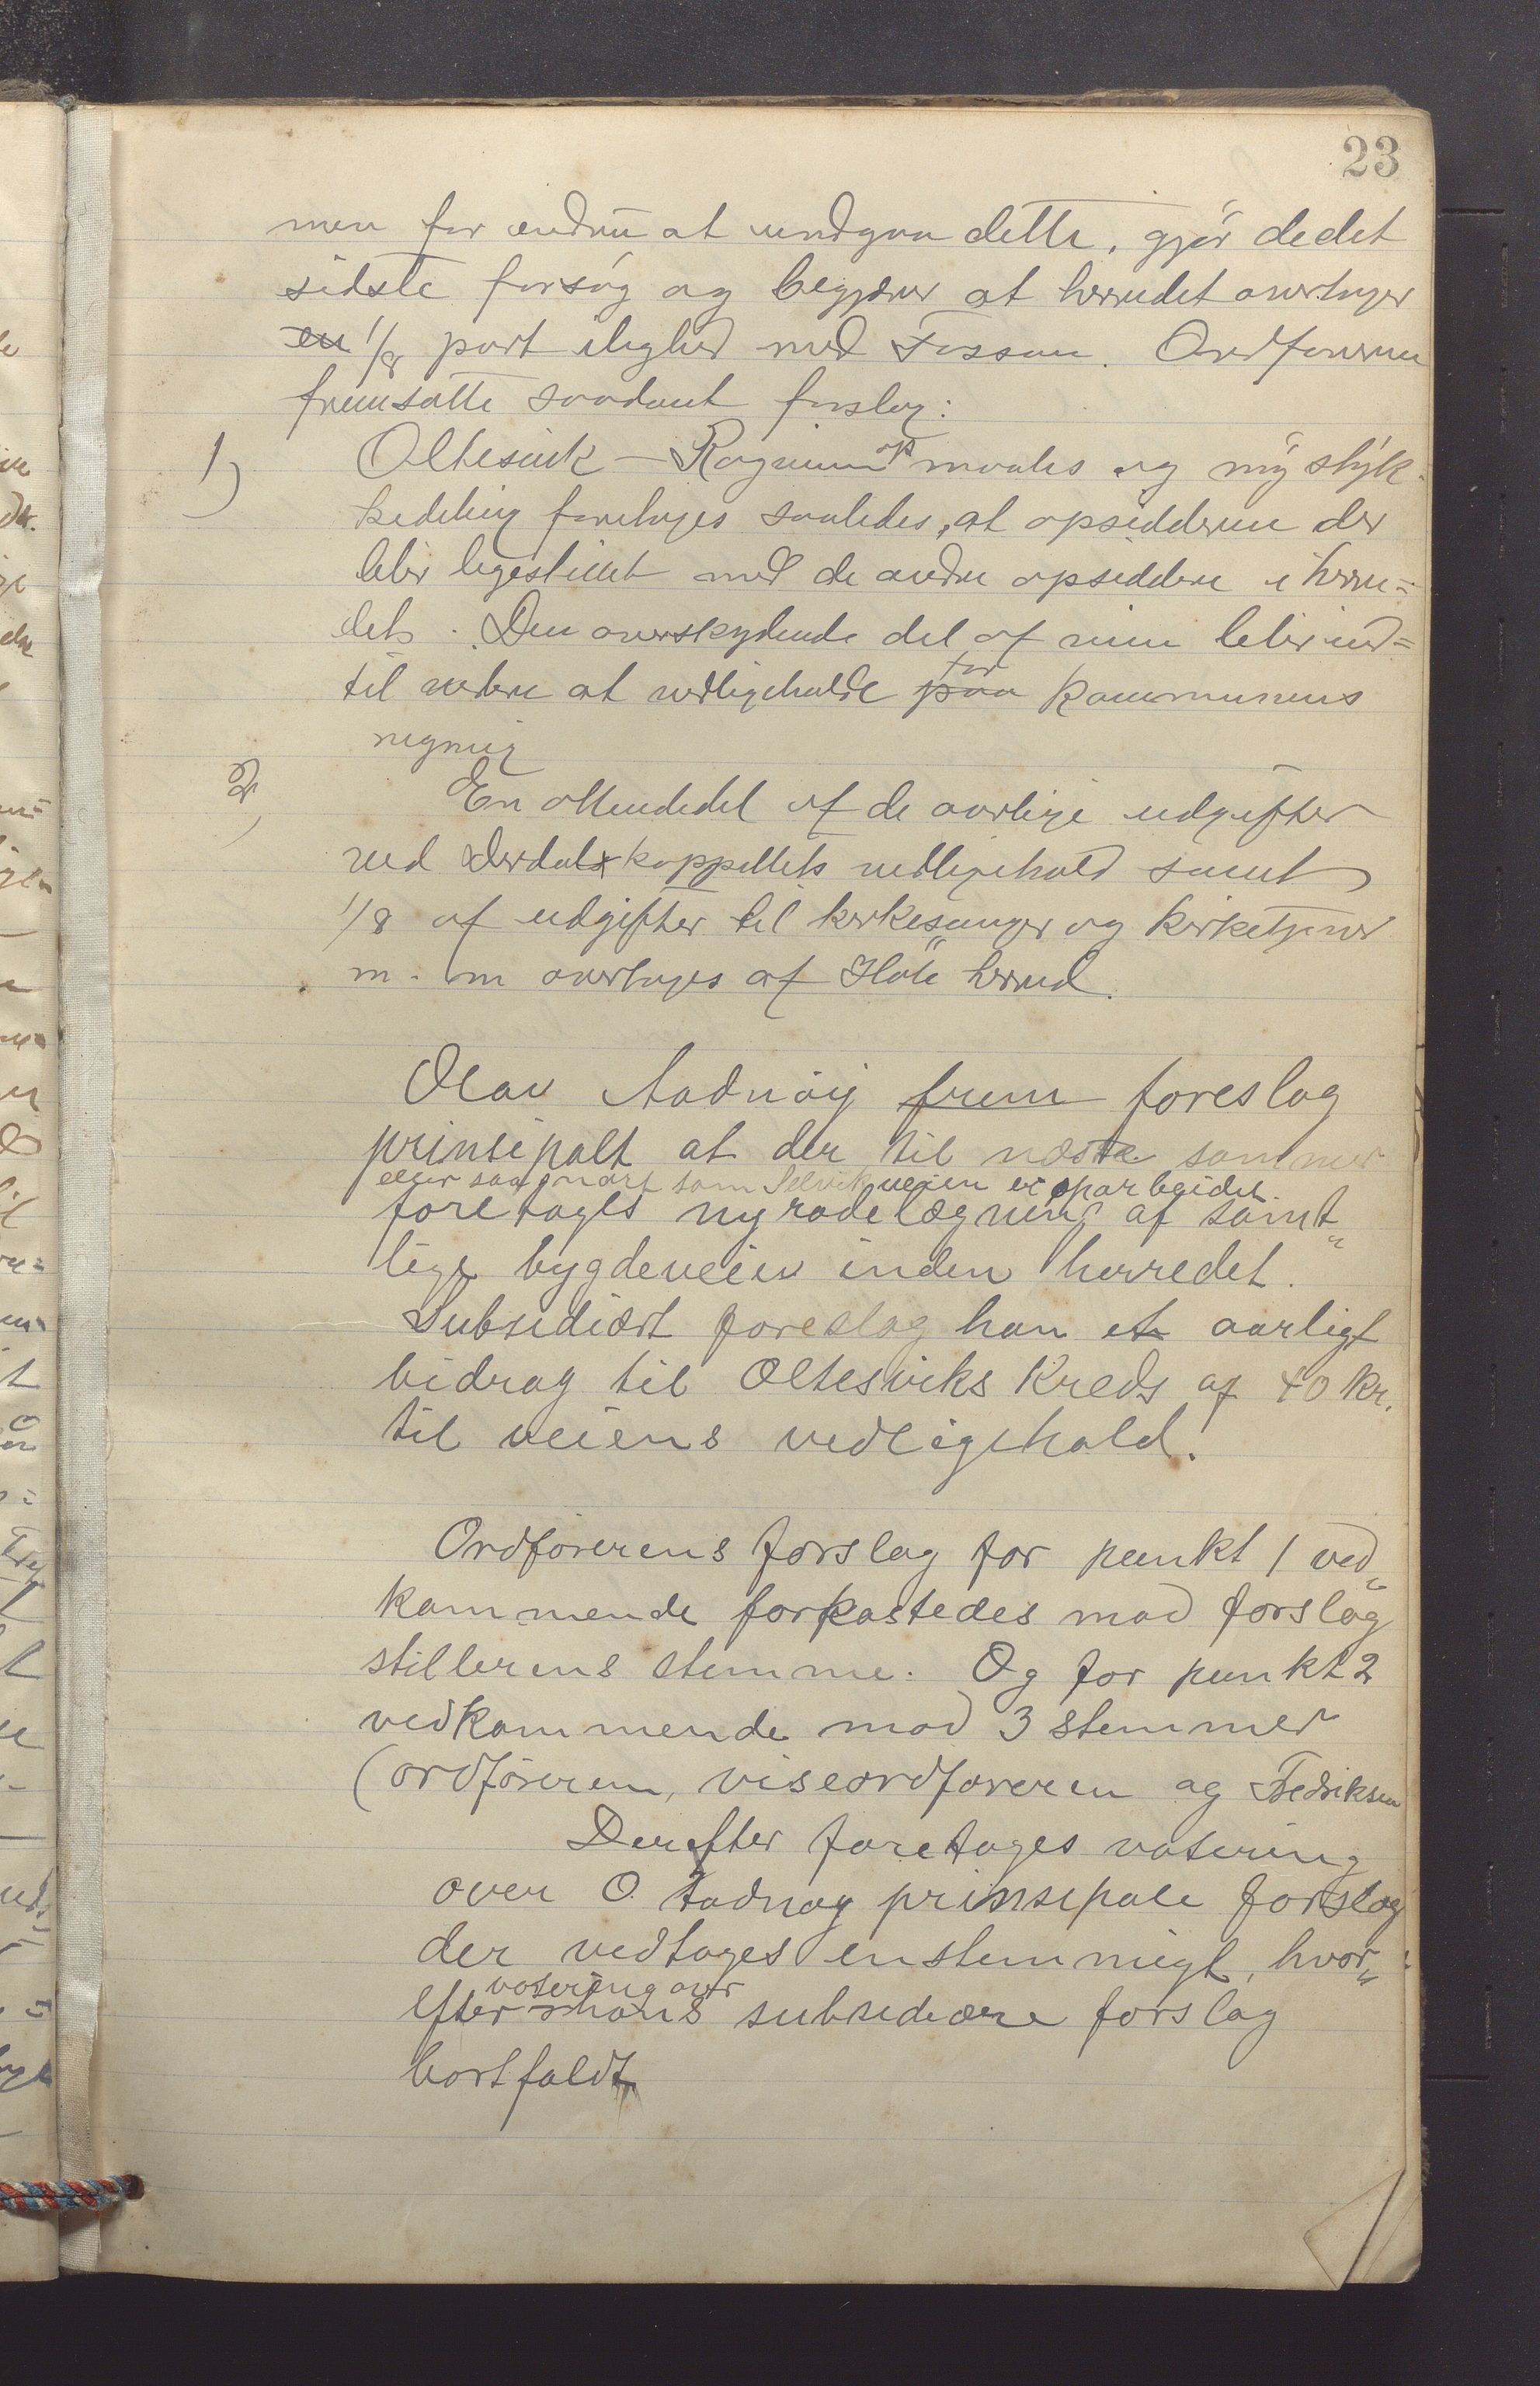 23
men for endnu at undgaa dette, gjør de det
sidste forsøg og begjærer at herredet overtager
en 1/8 part ilighed med Fossan. Ordføreren
fremsatte saadant forslag:
1) Oltesvik – Ragnum opmaales og ny styk-
kedeling foretages saaledes, at opsidderne der
blir ligestillet med de andre opsiddere i herre=
det. Den overskydende del af veien blir ind=
til videre at vedligeholde paa for kommunens
regning
2, En ottendedel af de aarlige udgifter
ved Dirdalskappellets vedligehold samt
1/8 af udgifter til kirkesanger og kirketjener
m. m overtages af Høle herred.
Olav Aadnøy frem foreslog
prinsipalt at der til næste sommer
eller saa snart som Selvikveien er oparbeidet.
foretages ny rodelægning af samt„
lige bygdeveie inden herredet.
Subsidiært foreslog han et aarligt
bidrag til Oltesviks Kreds af 40 kr.
til veiens vedligehold.
Ordførerens forslag for punkt 1 ved„
kommende forkastedes mod forslag
stillerens stemme. Og for punkt 2
vedkommende mod 3 stemmer
(ordføreren, viseordføreren og Fredriksen
Derefter foretages votering
over O. Aadnøy prinsipale forslag
der vedtages enstemmigt, hvor„
votering over
efter hans subsidiære forslag
bortfaldt